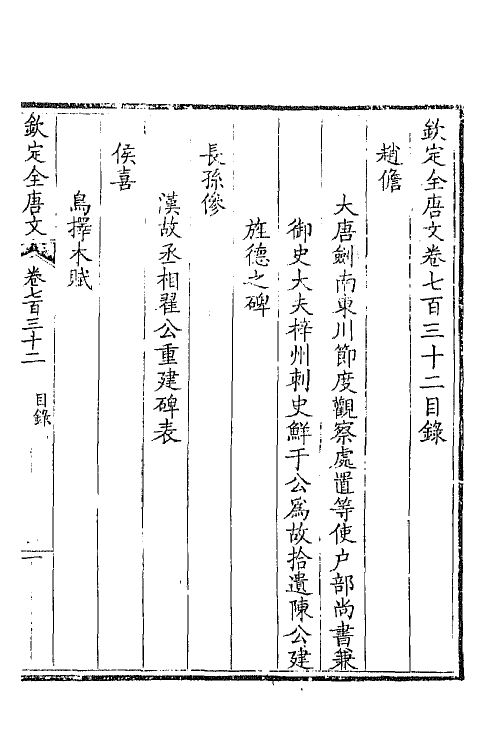 欽定全唐文卷七百三十二目錄
趙儋
大唐劍南東川節度觀察處置等使户部尚書兼
御史大夫梓州刺史鮮于公爲故拾遺陳公建
旌德之碑
長孫傪
漢故丞相翟公重建碑表
侯喜
鳥擇木賦
欽定全唐文
卷七百三十二
目錄